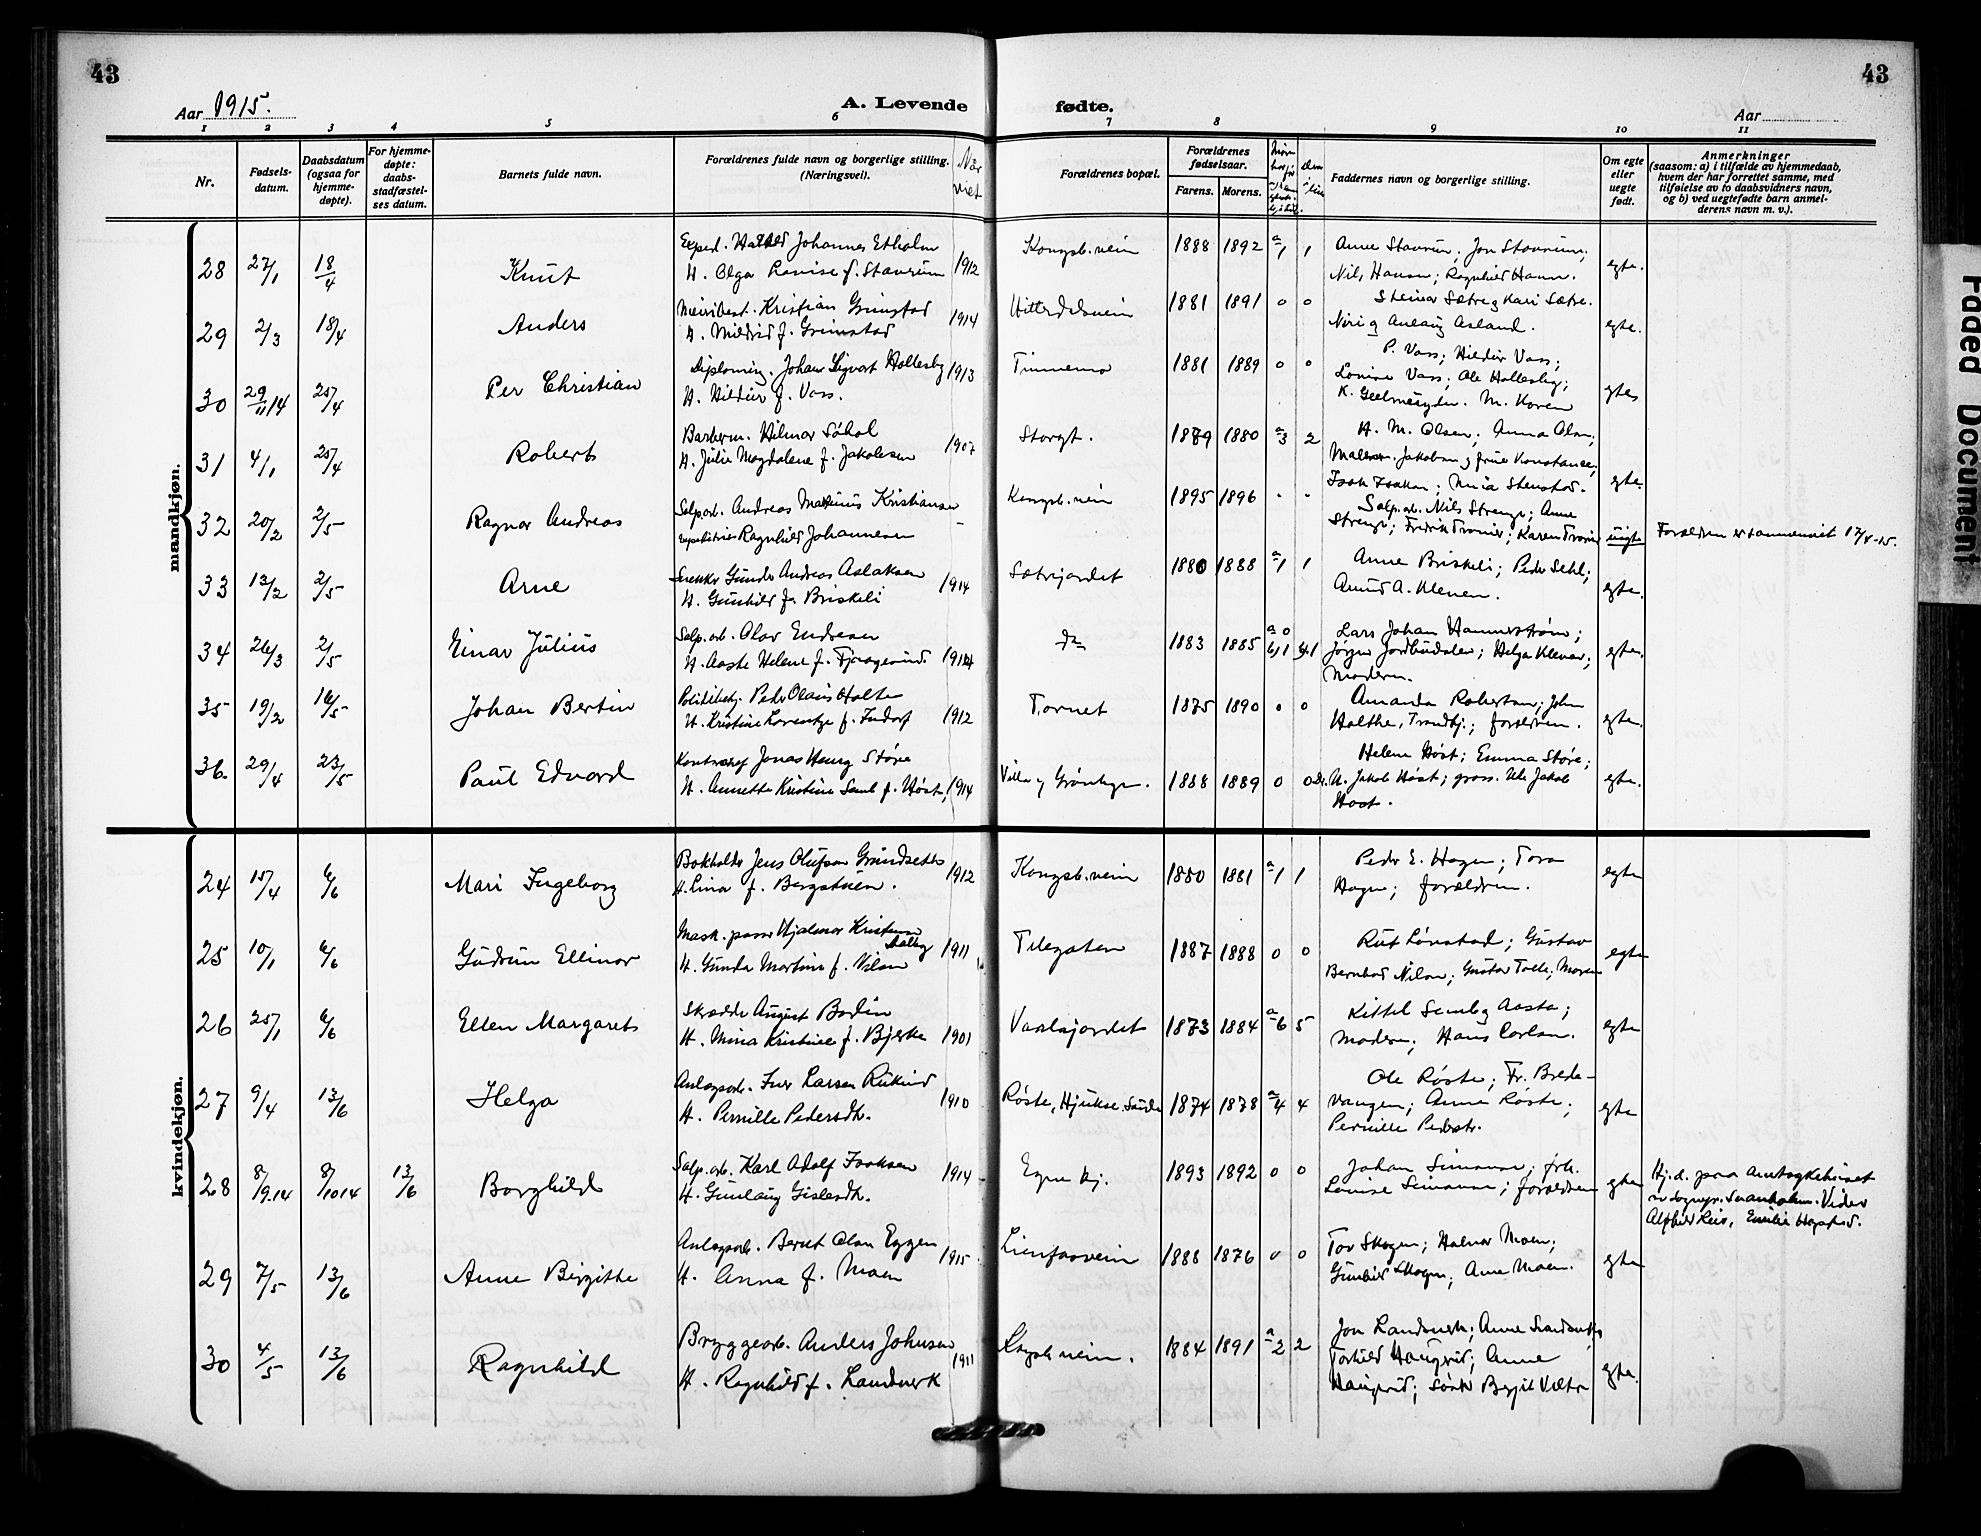 43
43
Aar 1915.
A. Levende fødte.
Aar
1 2 3 4 5 6 7 8 9 10 11
Nr.
Fødsels-
datum.
Daabsdatum
(ogsaa for
hjemme-
døpte).
For hjemme-
døpte:
daabs-
stadfæstel-
ses datum.
Barnets fulde navn.
Forældrenes fulde navn og borgerlige stilling.
(Næringsvei).
Når
viet
Forældrenes bopæl.
Forældrenes
fødselsaar.
Farens. Morens.
Faddernes navn og borgerlige stilling.
Om egte
eller
uegte
født.
Anmerkninger
(saasom: a) i tilfælde av hjemmedaab,
hvem der har forrettet samme, med
tilføielse av to daabsvidners navn,
og b) ved uegtefødte barn anmel-
derens navn m. v.).
mandkjøn.
28 27/1 18/4 Knut
Johannes Etholm
H. Olga Lovise f. Stavrum 1912
Kongsb.vein 1888 1892 a1 1
Anne Stavrum; Jon Stavrum;
Nils Hansen; Ragnhild Hansen.
egte.
29 2/3 18/4 Anders
Kristian Grimstad
H. Mildrid f. Grimstad 1914
Hitterdalsvein 1881 1891 0 0
Steinar Sætre og Kari Sætre.
Aslaug Aasland.
egte.
30 29/11 14 25/4 Per Christian
Diploming. Johan Sigvart Holtesby 1913
H. Hildur f. Vass.
Tinnemo 1881 1889 0 0
P. Vass; Hildur Vass;
Lovise Vass; Ole Holtesby;
M. Horen
egte
31 4/1 25/4 Robert
Barberm. Hilmar Söhol
H. Julie Magdalene f. Jakobsen 1907
Storgt. 1879 1880 a3 2
H. M. Olsen; Anna Olsen;
Jakobsen og frue Konstance;
Isak Isaksen; Stenstad.
egte.
32 20/2 2/5 Ragnar Andreas
Salp.arb. Andreas Markinus Kristiansen
Ragnhild Johannesen –
Kongsb.vein 1895 1896 - -
Salp.arb. Nils Strenge; Anne
Strenge; Fredrik Tronier; Karen Tronier
uegte
Forældrene er sammenviet 17/8-15.
33 13/2 2/5 Arne
Snekker Gunder Andreas Aslaksen
H. Gunhild f. Briskeli 1914
Sætrejordet 1880 1888 a1 1
Anne Briskeli; Peder Sehl;
Amund A. Kleven.
egte.
34 26/3 2/5 Einar Julius
Salp.arb. Olav Endresen
H. Aaste Helene f. Fjeagesund. 1914
do 1883 1885 a0 b1
Lars Johan Hammerstrøm;
Jørgen Jordbudalen; Helga Kleven;
Moderen.
egte.
35 19/2 16/5 Johan Bertin
Politibetj. Peder Olaus Holte
H. Kristine Lorentze f. Indorf 1912
Tornet 1875 1890 0 0
Amanda Robertson; John
Holthe, Trondhj.; forældrene.
egte.
36. 29/4 23/5 Paul Edvard
Kontorchef Jonas Henry Støre
H. Annette Kristine Semb f. Høst, 1914
Villa 1888 1889 0 0
Helene Høst; Emma Støre;
Dr. N. Jakob Høst; gross. Jakob
Høst.
egte.
kvindekjøn.
24 15/4 6/6 Mari Ingeborg
Bokholder Jens Olufsen Grundseth
H. Lina f. Bergstuen. 1912
Kongsb.vein 1880 1881 a1 1
Peder E. Hagen; Tora
Hagen; forældrene.
egte
25 10/1 6/6 Gudrun Ellinor
Mask. passer Hjalmar Kristensen
H. Gunda Martine f. Nilsen 1911
Telegaten 1887 1888 0 0
Rut Lønstad; Gustav
Bernhard Nilsen; Gustav Tolle; Moren
egte
26 25/1 6/6 Ellen Margaret
Skrædder August Bodin
H. Mina Kristine f. Bjerke 1901
1873 1884 a6 5
Kittel Semb og Aasta;
Moderen; Hans Carlsen.
egte
27 9/4 13/6 Helga
Anlegsarb. Iver Larsen
H. Pernille Pedersdtr. 1910
Røste, Hjukse, Saude 1874 1878 a4 4
Ole Røste; Fr. Brede-
vangen; Anne Røste;
Pernille Pedersdtr.
egte
28 8/9.14 8/10 14 13/6 Borghild
Salp.arb. Karl Adolf Isaksen
H. Gunlaug Gislesdtr. 1914
Egne hj. 1893 1892 0 0
Johan Simonsen; frk.
Louise Simonsen; forældrene
egte
Hj.d. paa Amtssykehuset
av sognepr. Svanholm. Vidner
Alfhild Leis, Emilie Hogstad.
29 7/5 13/6 Anne Birgitte
Anlegsarb. Bernt Olsen Eggen
H. Anna f. Moen 1915
Lienfosvein 1888 1876 0 0
Tov Skogen; Halvor Moen;
Gunhild Skogen; Anne Moen.
egte
30 4/5 13/6 Ragnhild
Bryggearb. Anders Johnsen
H. Ragnhild f. Landsverk 1911
Kongsb.vein. 1884 1891 a2 2
Jon Landsverk; Anne Landsverk;
Torhild Haugrud; Anne
Haugrud; Birgit
egte.
Faded Document